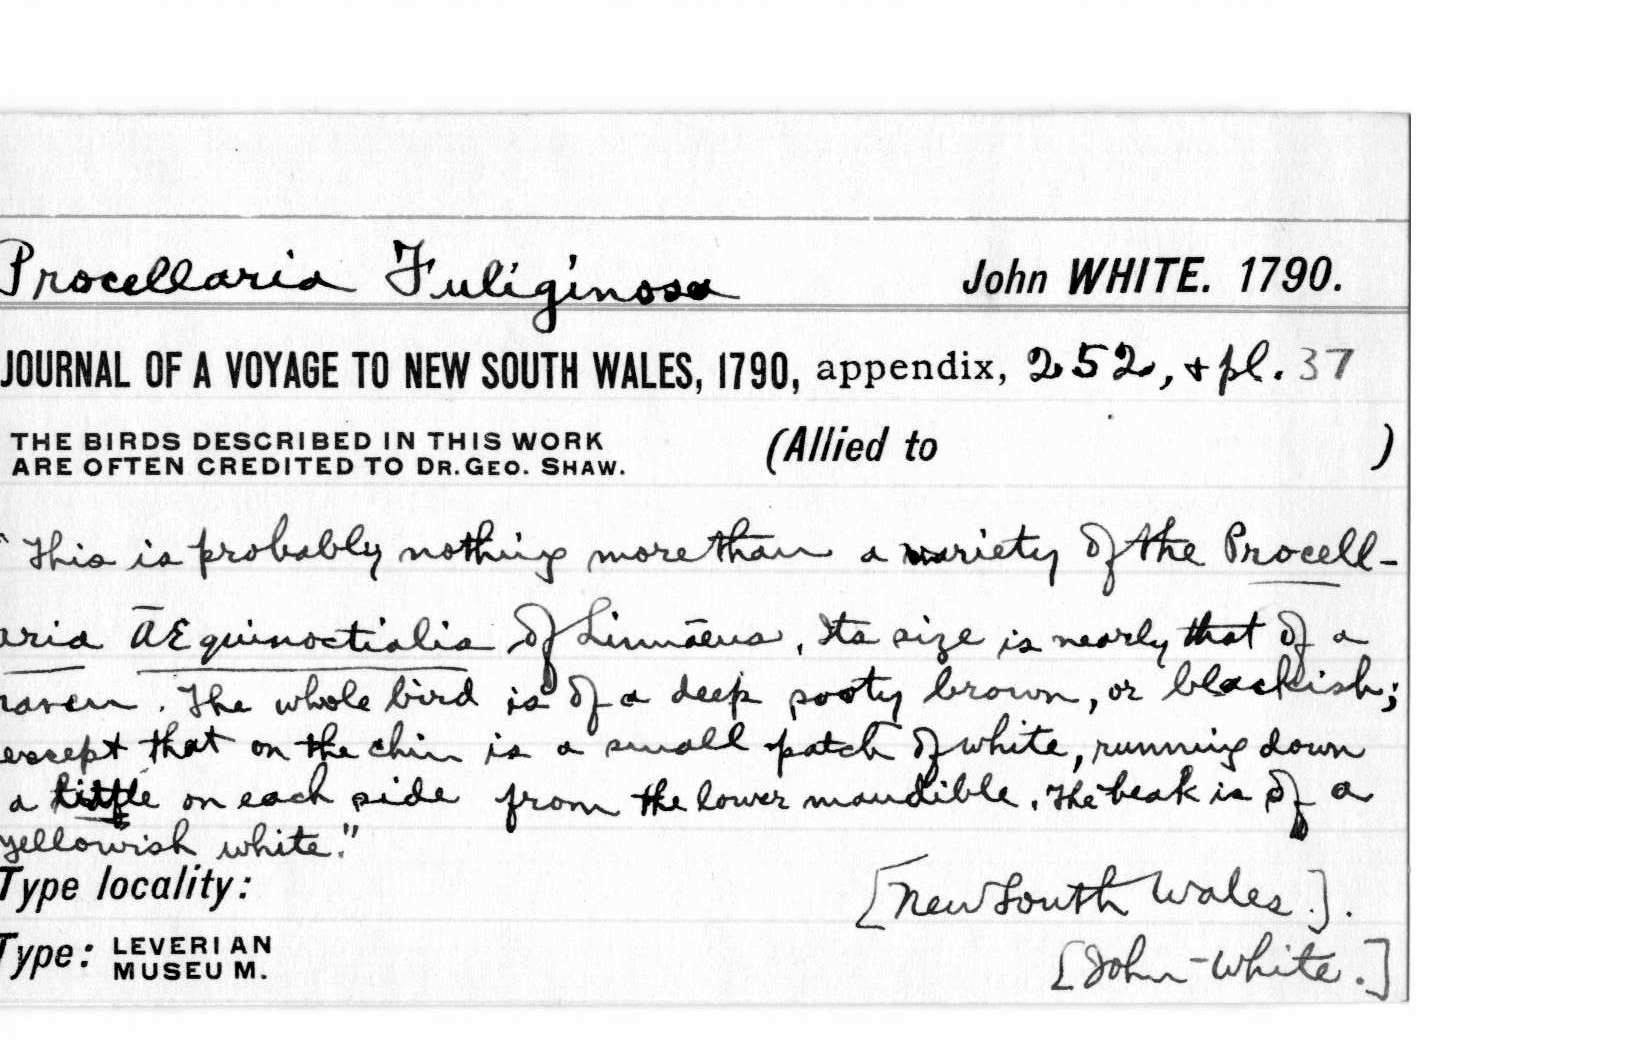 Procellaria Fuliginosa John WHITE. 1790.
JOURNAL OF A VOYAGE TO NEW SOUTH WALES, 1790, appendix, 252, + pl. 37
THE BIRDS DESCRIBED IN THIS WORK
ARE OFTEN CREDITED TO DR. GEO. SHAW.
(Allied to )
"This is probably nothing more than a variety of the Procell-
aria Æquinoctialis of Linnæus. Its size is nearly that of a
raven. The whole bird is of a deep sooty brown, or blackish;
except that on the chin is a small patch of white, running down
a little on each side from the lower mandible. The beak is of a
yellowish white."
Type locality: [New South Wales.].
Type: LEVERIAN
MUSEUM.
[John White.]